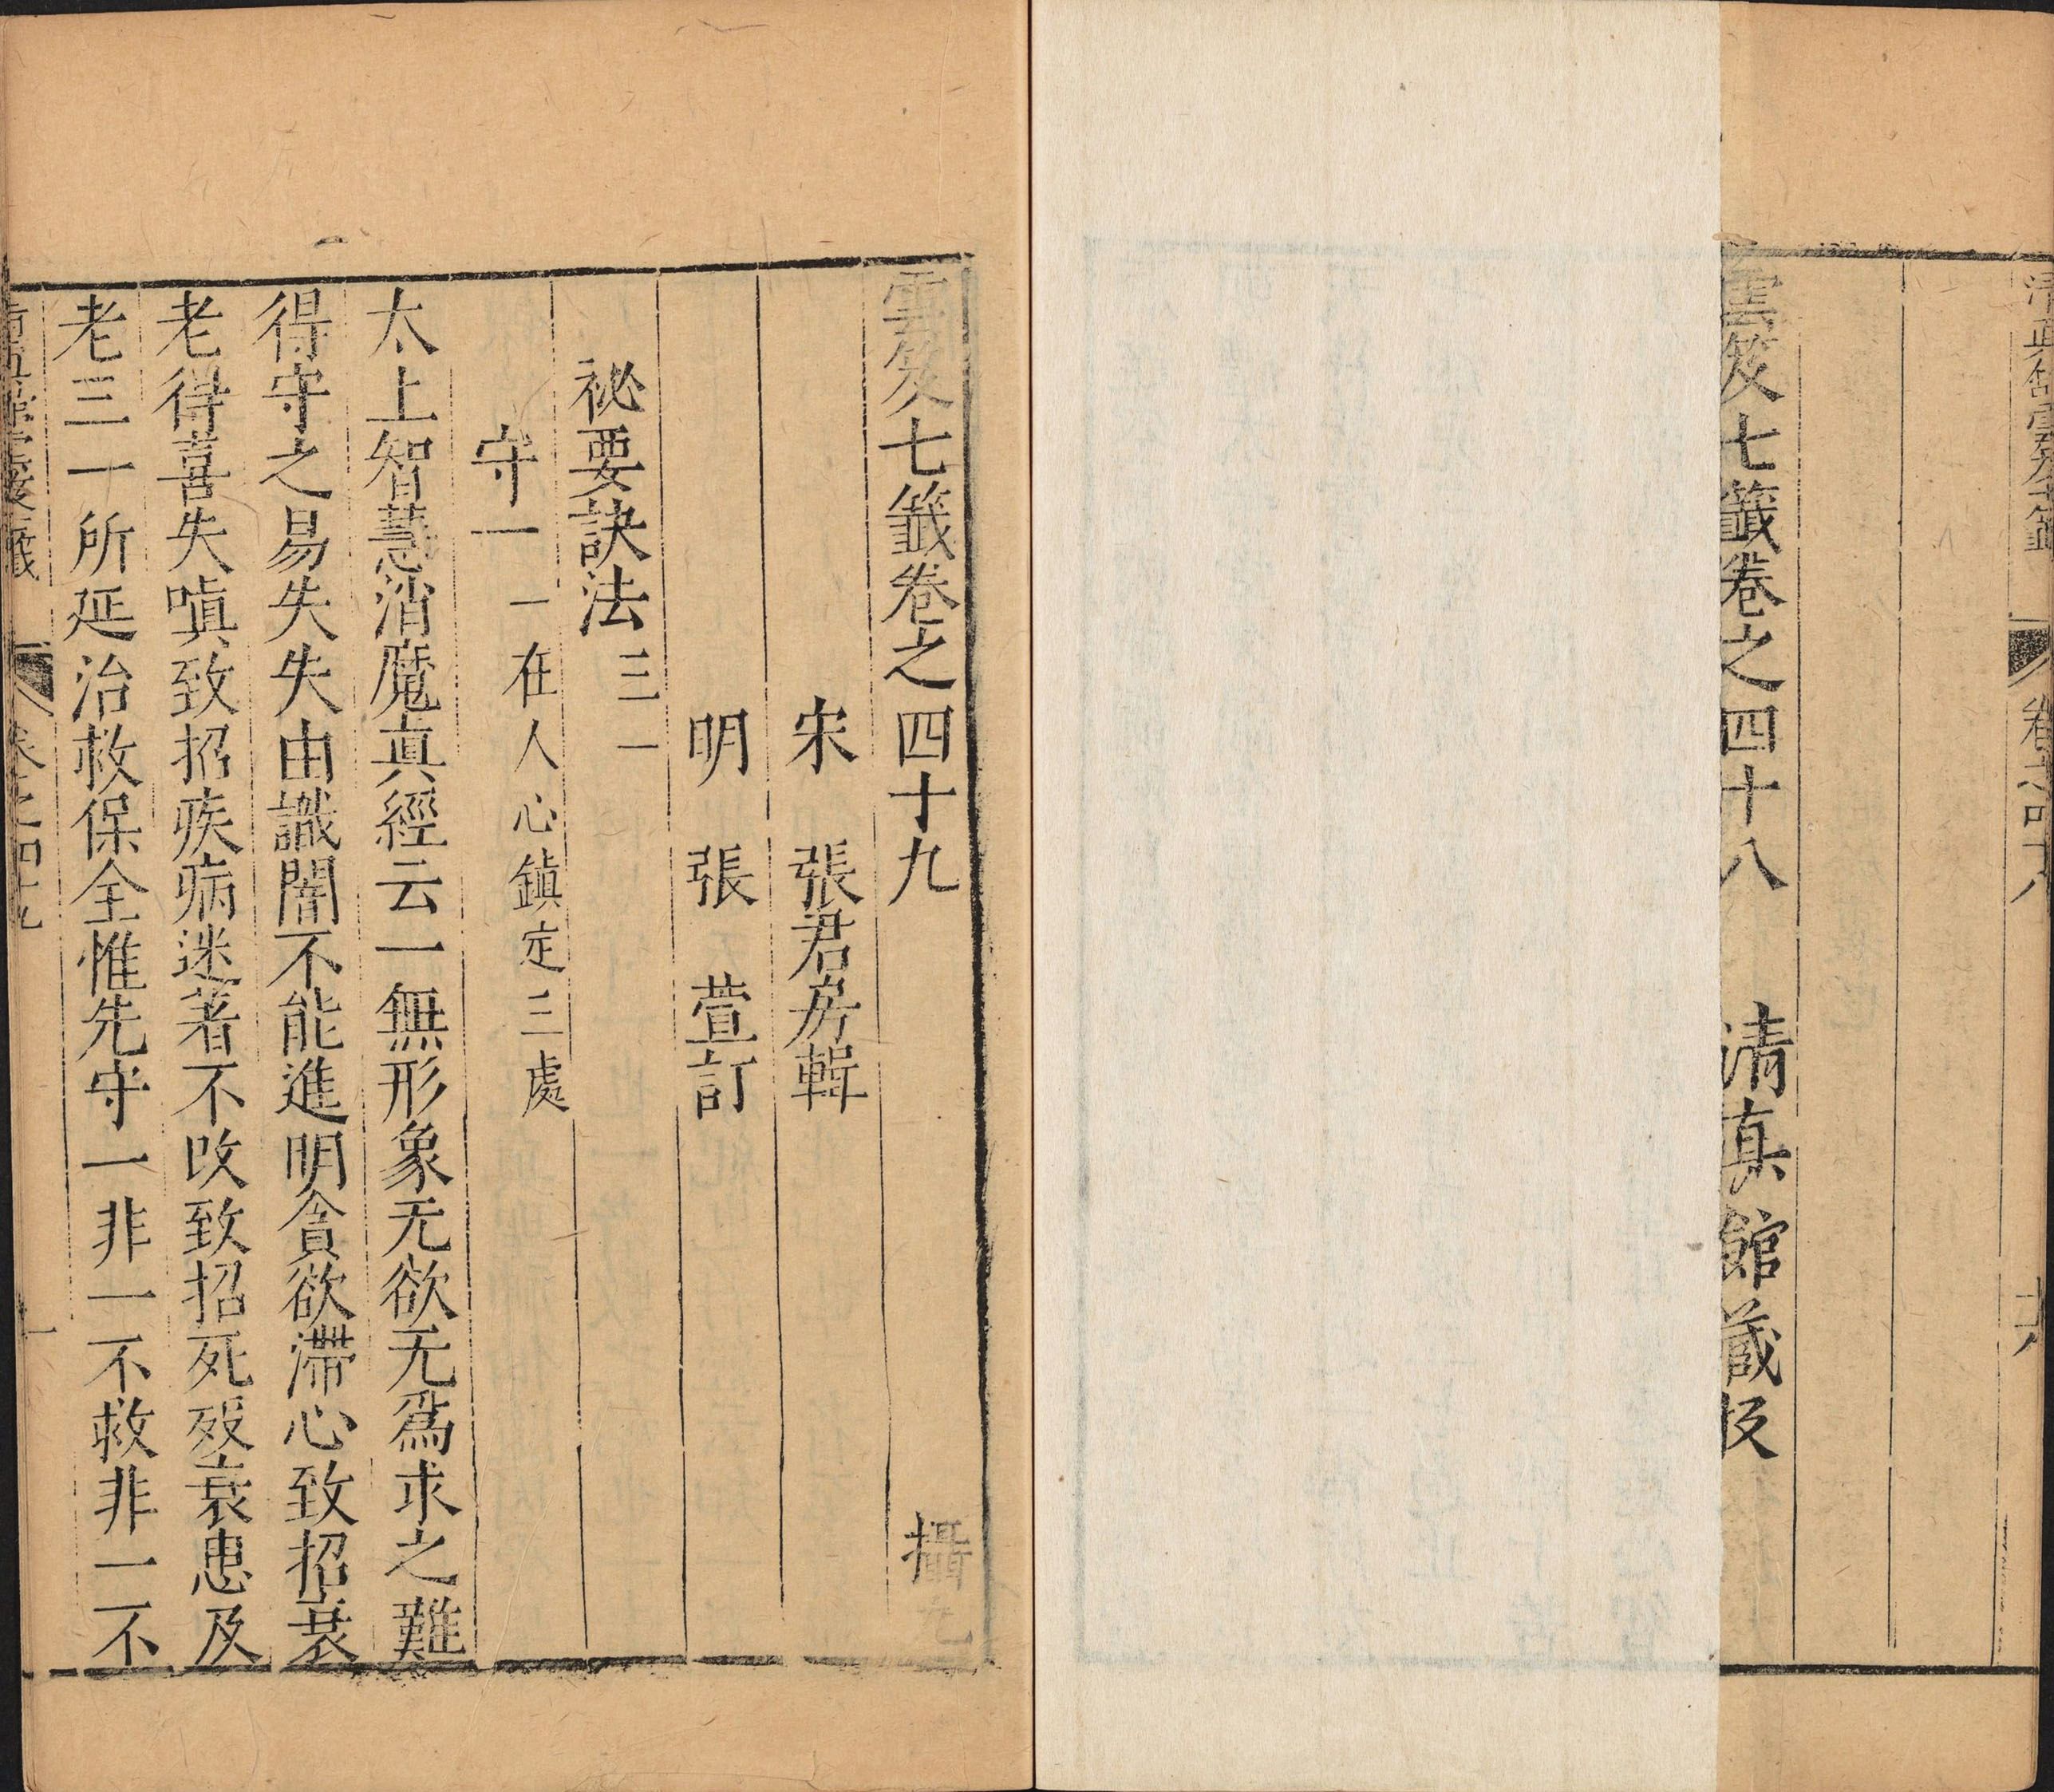 清真館雲笈七籤 卷之四十八 十六
雲笈七籤卷之四十八 清真館藏板
雲笈七籤卷之四十九 攝九
宋 張君房輯
明 張 萱訂
祕要訣法三一
守一 一在人心鎮定三處
太上智慧消魔真經云一無形象无欲无為求之難
得守之易失失由識闇不能進明貪欲滯心致招衰
老得喜失嗔致招疾病迷著不改致招死歿衰患及
老三一所延治救保全惟先守一非一不救非一不
卷之四十九 一